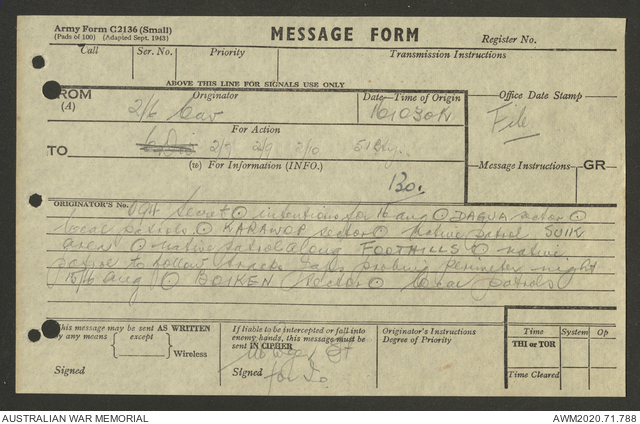 Army Form C2136 (Small)
(Pads of 100) (Adapted Sept. 1943)
MESSAGE FORM
Register No.
Call Ser. No. Priority Transmission Instructions
ABOVE THIS LINE FOR SIGNALS USE ONLY
FROM Originator Date—Time of Origin Office Date Stamp
(A) 2/6 Cav 161030K File
For Action
TO 6 Div 2/8 2/9 2/10
(w) For Information (INFO.) Message Instructions GR
130.
ORIGINATOR'S No. Secret O intentions for 16 aug O DAGUA sector O
local patrols O KARAWOP sector O native patrol
area O native patrol along FOOTHILLS O native
patrol to follow probing perimeter night
15/16 aug O BOIKEN sector O local patrols
This message may be sent AS WRITTEN
by any means except
Wireless
Signed
If liable to be intercepted or fall into
enemy hands, this message must be
sent IN CIPHER
Signed for
Originator's Instructions
Degree of Priority
Time System Op
THI or TOR
Time Cleared
AUSTRALIAN WAR MEMORIAL
AWM2020.71.788